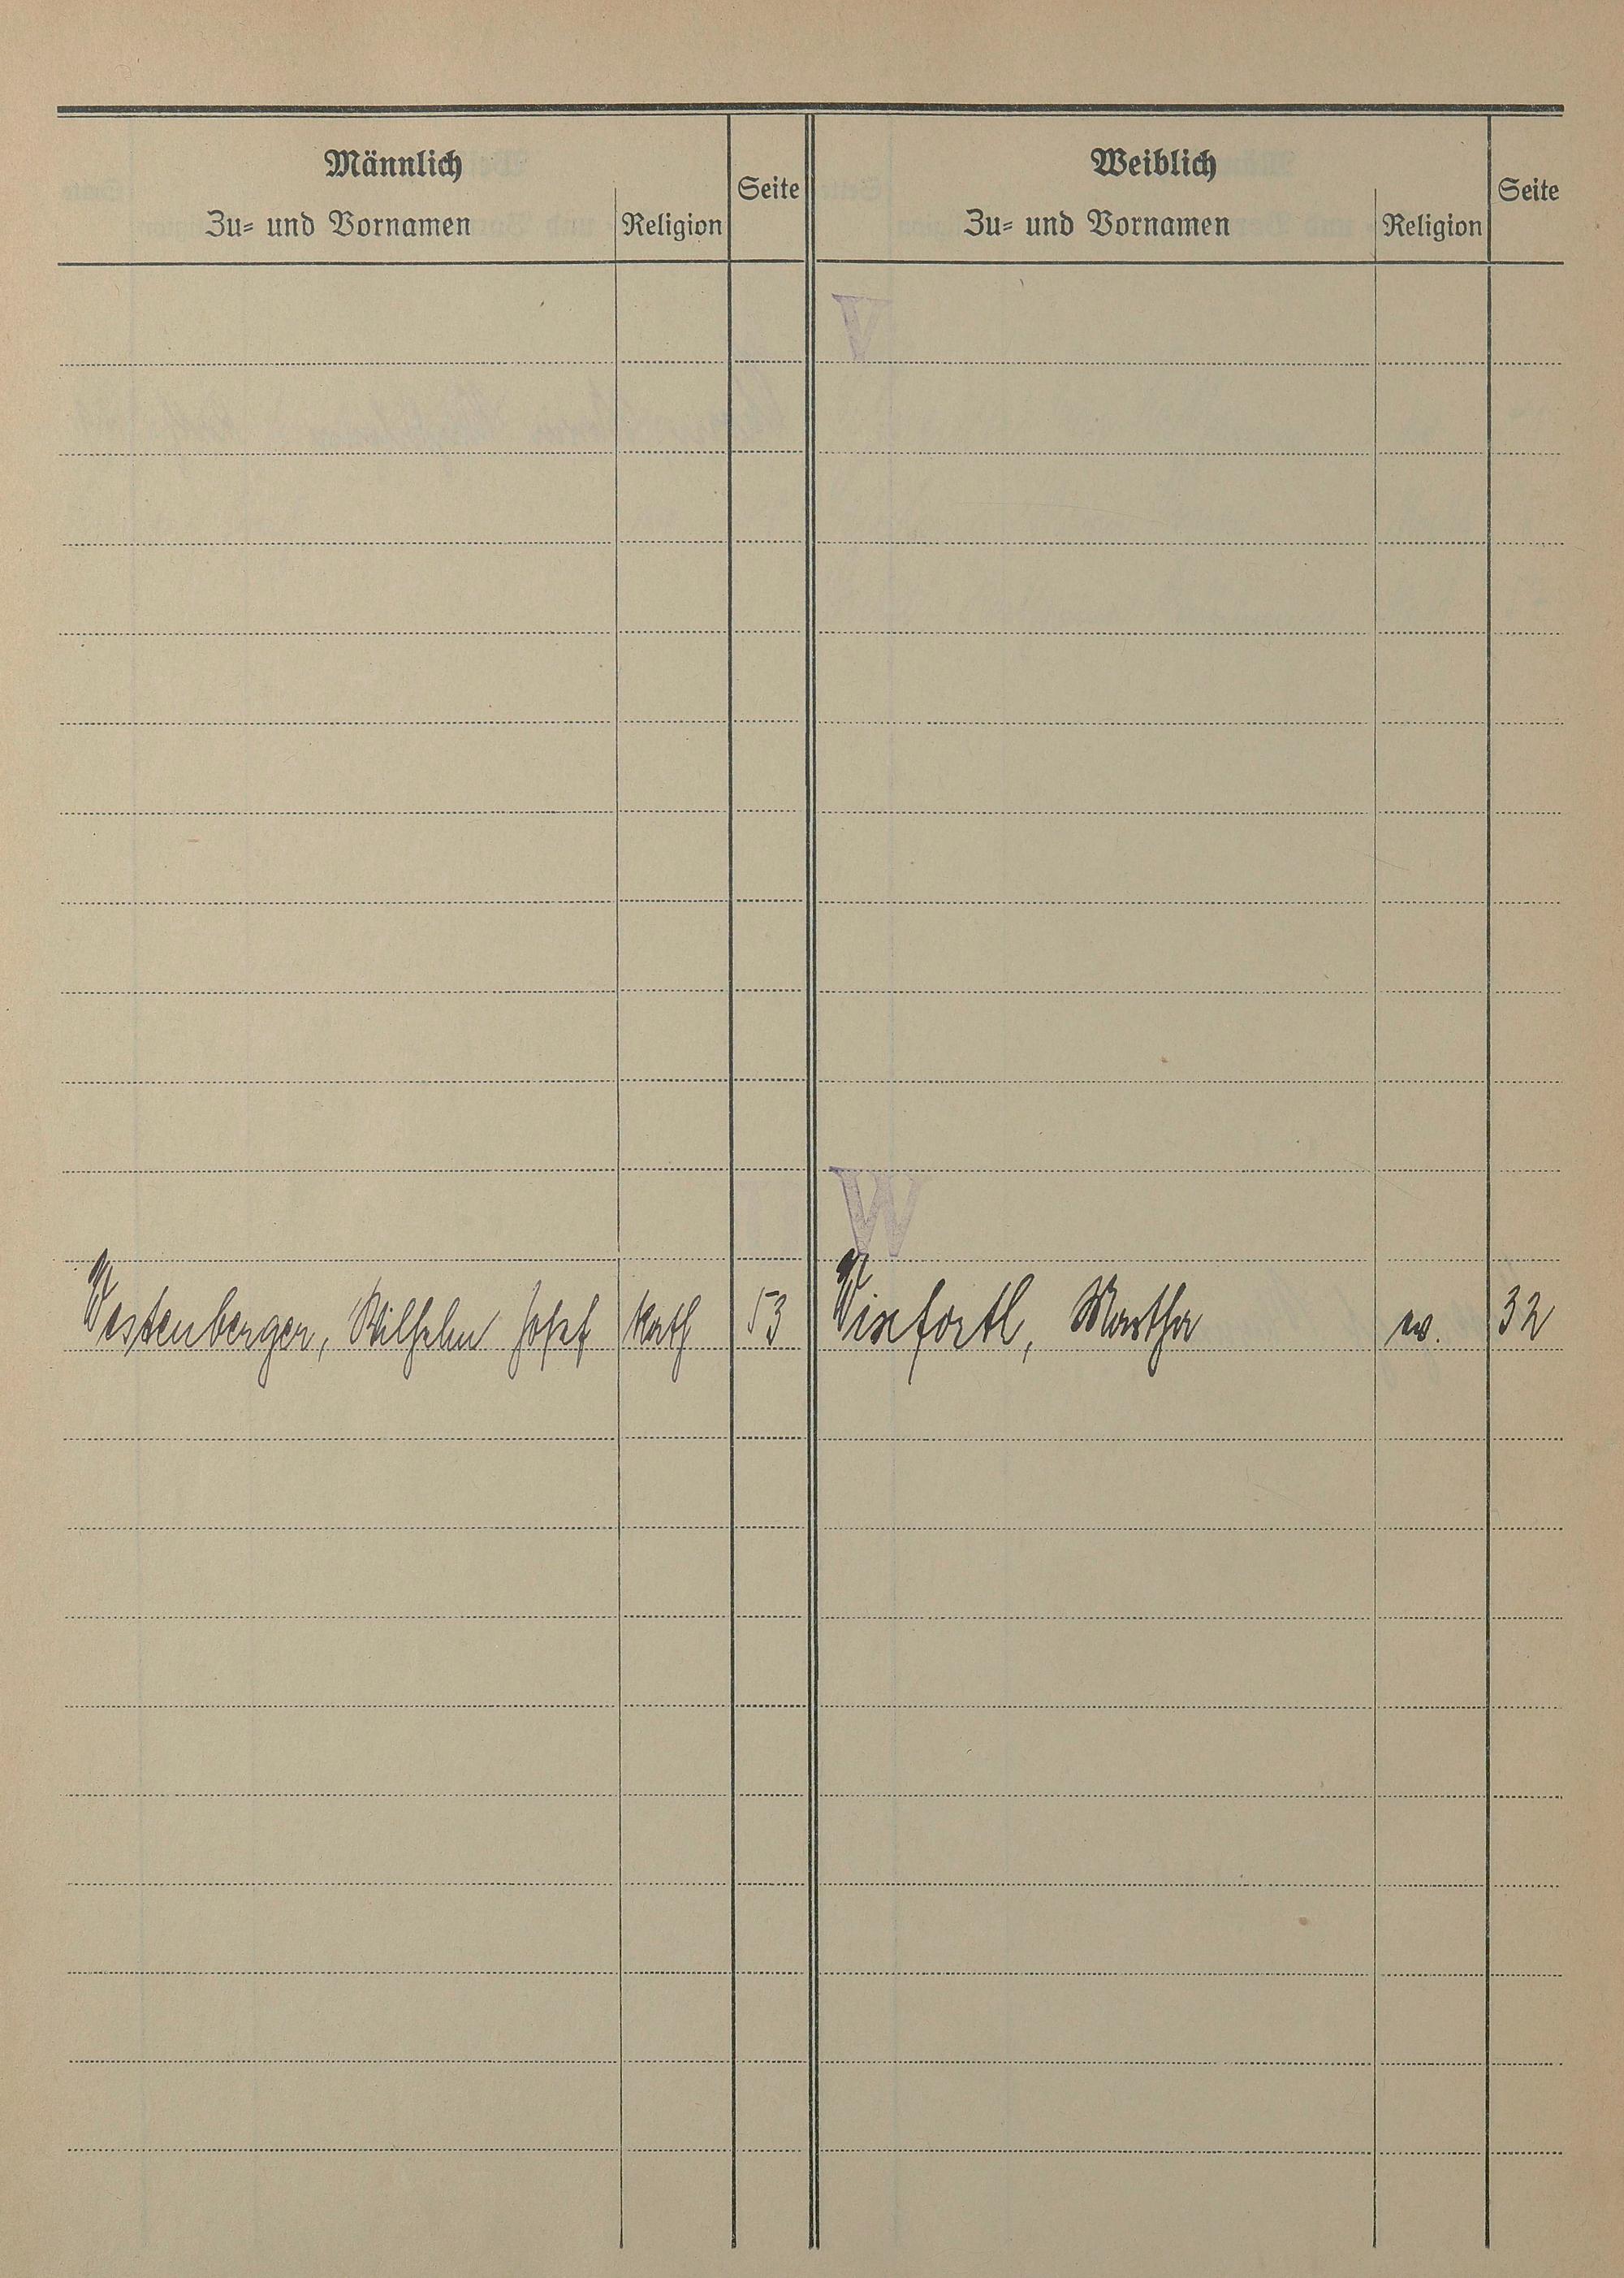 Männlich Seite Weiblich Seite
Zu= und Vornamen Religion Zu= und Vornamen Religion
V
W
Westenberger, Wilhelm Josef Kath 53 Wixfortl, Martha ev. 32